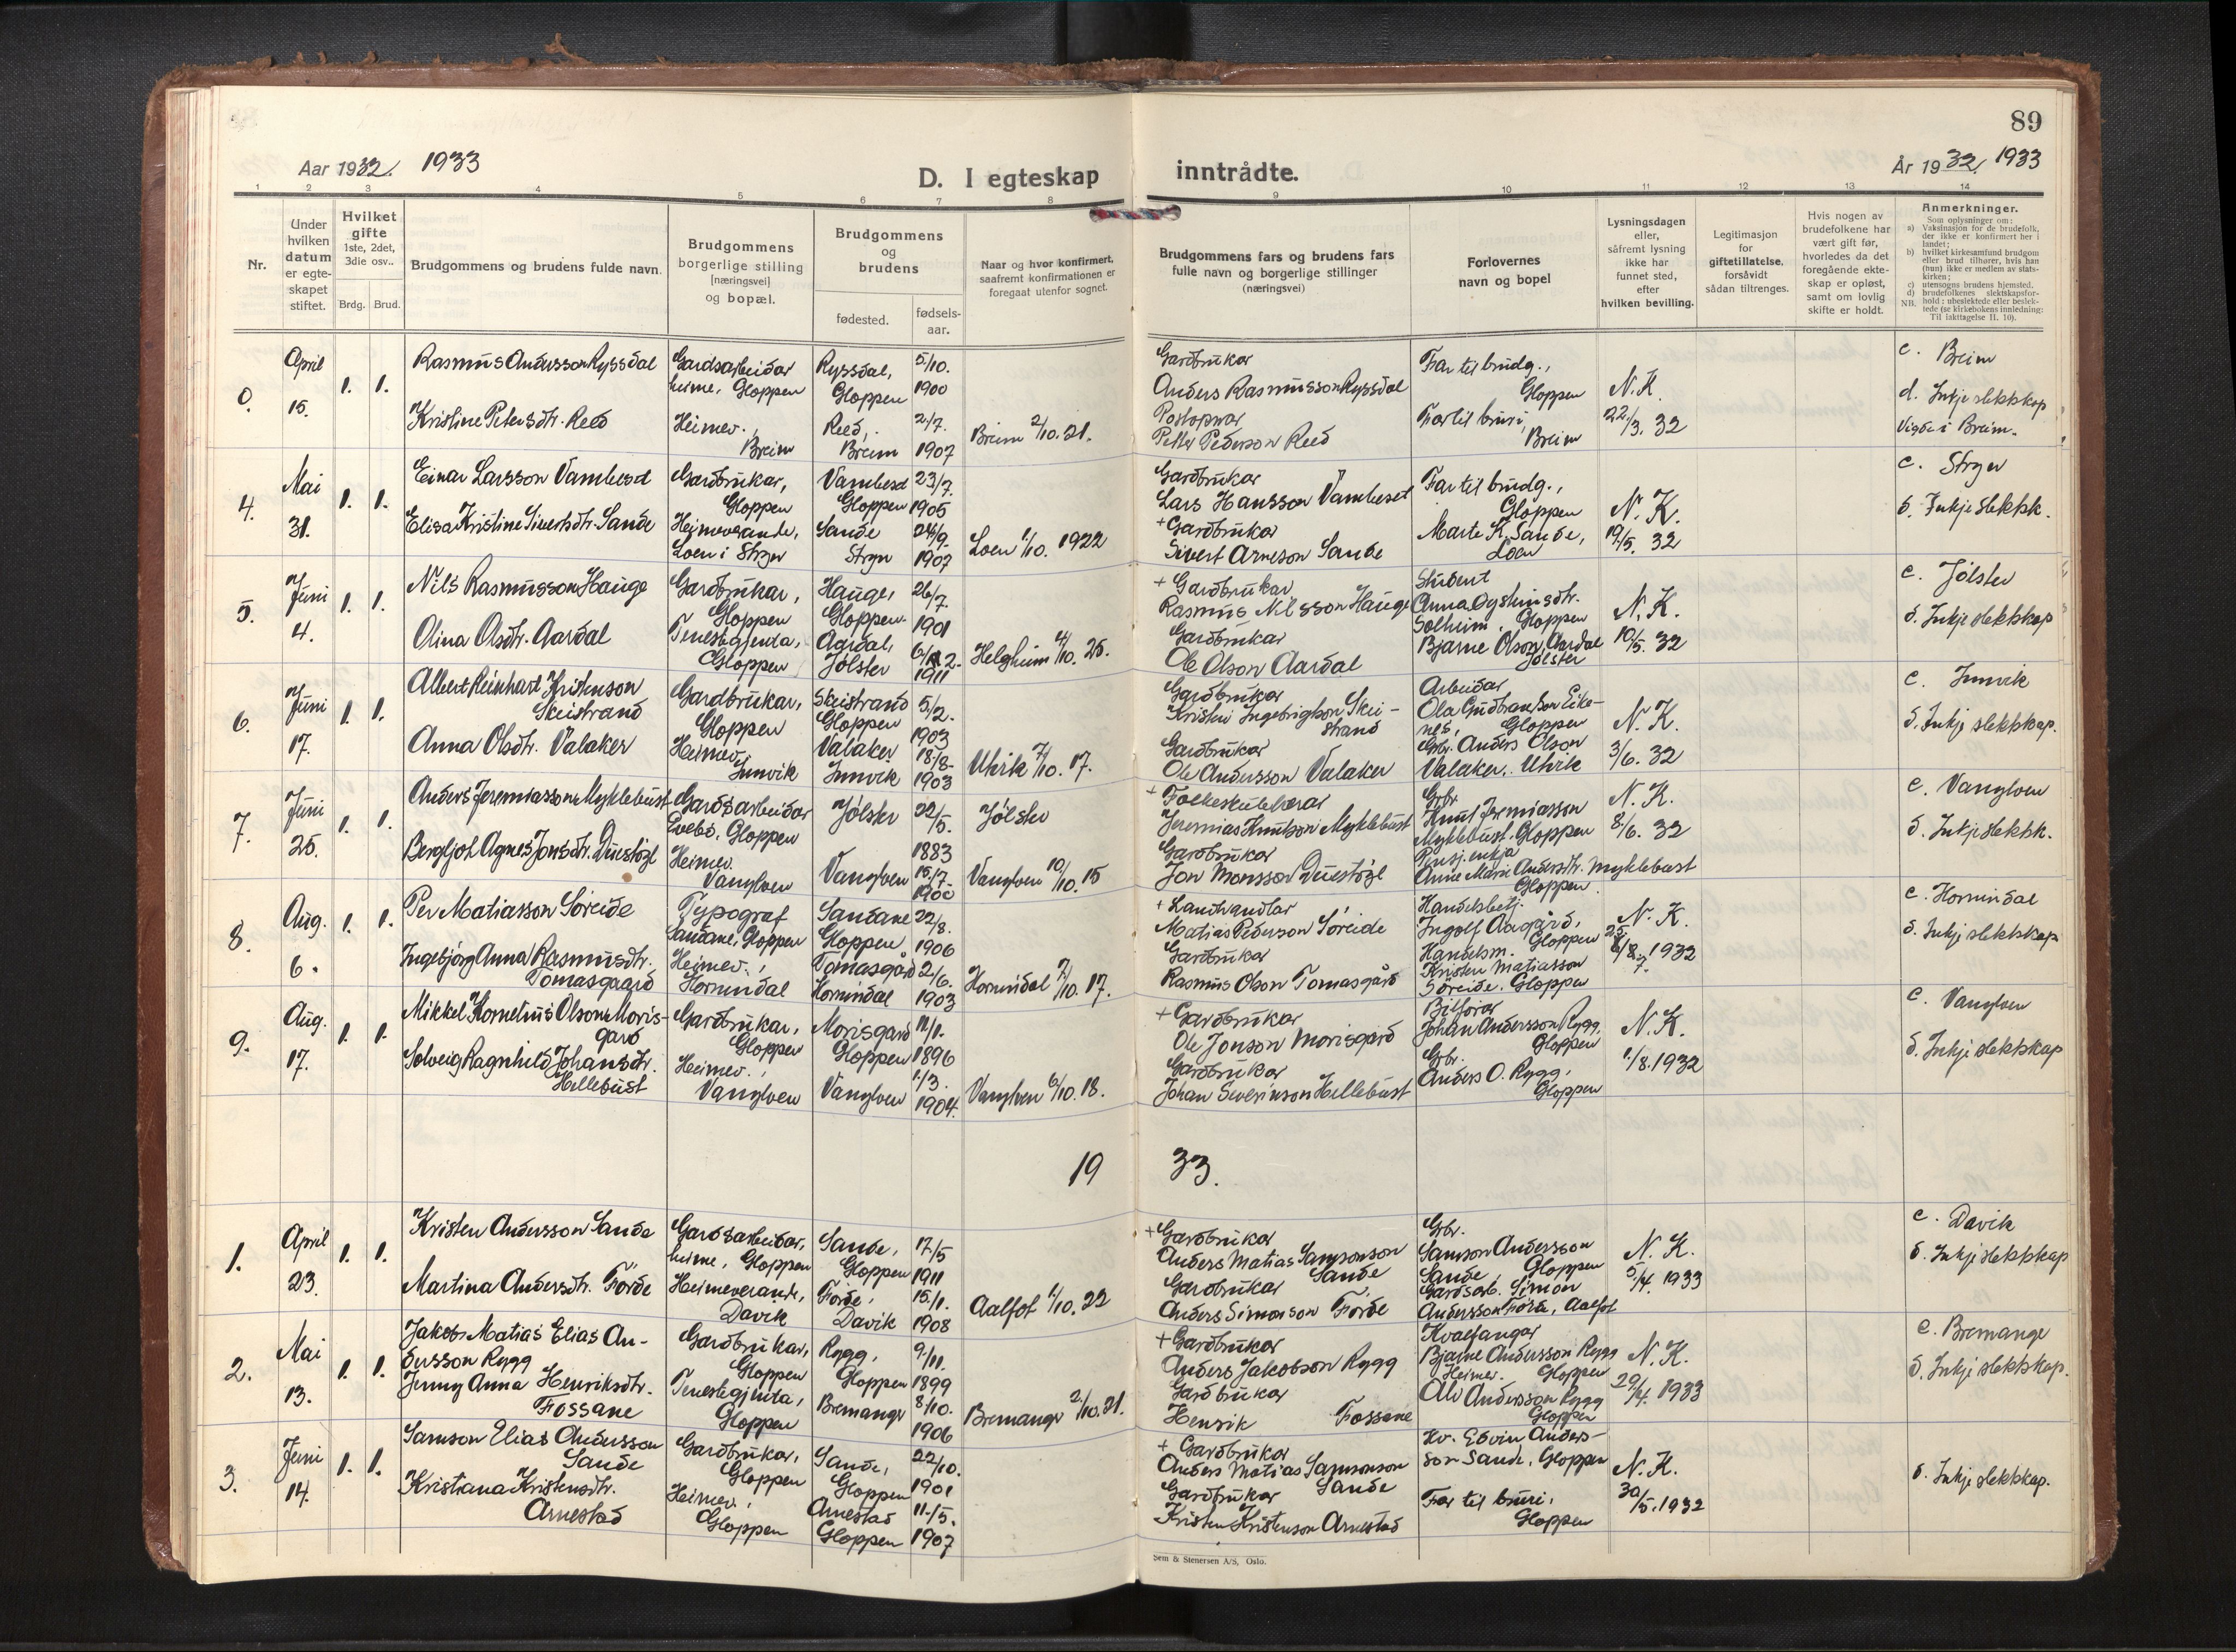 89
Aar 1932. 1933
D. I egteskap inntrådte.
År 1932. 1933
1 2 3 4 5 6 7 8 9 10 11 12 13 14
Nr.
Under hvilken datum er egteskapet stiftet.
Hvilket gifte 1ste, 2det, 3die osv..
Brdg. Brud.
Brudgommens og brudens fulde navn.
Brudgommens borgerlige stilling (næringsvei) og bopæl.
Brudgommens og brudens
fødested.
fødsels-aar.
Naar og hvor konfirmert, saafremt konfirmationen er foregaat utenfor sognet.
Brudgommens fars og brudens fars fulle navn og borgerlige stillinger (næringsvei)
Forlovernes navn og bopel
Lysningsdagen eller, såfremt lysning ikke har funnet sted, efter hvilken bevilling.
Legitimasjon for giftetillatelse, forsåvidt sådan tiltrenges.
Hvis nogen av brudefolkene har vært gift før, hvorledes da det foregående ekteskap er opløst, samt om lovlig skifte er holdt.
Anmerkninger.
Som oplysninger om:
a) Vaksinasjon for de brudefolk, der ikke er konfirmert her i landet;
b) hvilket kirkesamfund brudgom eller brud tilhører, hvis han (hun) ikke er medlem av statskirken;
c) utensogns brudens hjemsted.
d) brudefolkenes slektskapsforhold: ubeslektede eller beslektede (se kirkebokens innledning: Til iakttagelse II. 10).
NB.
0. April 15. 1. 1.
Rasmus Andersson Ryssdal
Gardsarbeidar heime, Gloppen
Ryssdal, Gloppen
5/10. 1900
Gardbrukar
Anders Rasmusson Ryssdal
Far til brudg., Gloppen
N.K. 22/3. 32
c. Breim
d. Inkje slektskap
Vigde i Breim.
Kristine Petersdtr. Reed
Heimev., Breim
Reed, Breim
2/7. 1907
Breim 2/10.21.
Postopnar
Petter Pederson Reed
Far til bruri, Breim
4. Mai 31. 1. 1.
Einar Larsson Vambesd
Gardbrukar, Gloppen
Vambesd Gloppen
23/7. 1905
Gardbrukar
Lars Hansson Vambeset
Far til brudg., Gloppen
N.K. 19/5. 32
c. Stryn
d. Inkje slektsk.
Elisa Kristine Sivertsdtr. Sande
Heimeverande, Loen i Stryn
Sande Stryn
24/9. 1907
Loen 1/10. 1922
+ Gardbrukar
Sivert Arneson Sande
Marte K. Sande, Loen
5. Juni 4. 1. 1.
Nils Rasmusson Hauge
Gardbrukar, Gloppen
Hauge, Gloppen.
26/7. 1901
+ Gardbrukar
Rasmus Nilsson Hauge
Student
Anna Øysteinsdtr. Solheim, Gloppen
N.K. 10/5. 32
c. Jølster
d. Inkje slektskap
Olina Olsdtr. Aardal
Tenestgjenta, Gloppen
Jølster
1911
Helgheim 4/10. 25.
Gardbrukar
Ole Olson Aardal
Bjarne Olson Aardal Jølster
6. Juni 17. 1. 1.
Albert Reinhart Kristenson Skeistrand
Gardbrukar, Gloppen
Skeistrand Gloppen
5/2. 1903
Gardbrukar
Kristen Ingebrigtson Skeistrand
Arbeidar
Ola Gudbrandson Eikenes, Gloppen
N.K. 3/6. 32
c. Innvik
d. Inkje slektskap.
Anna Olsdtr. Valaker
Heimev. Innvik
Valaker Innvik
18/8. 1903
Utvik 7/10. 17.
Gardbrukar
Ole Andersson Valaker
Grbr. Anders Olson Valaker, Utvik
7. Juni 25. 1. 1.
Anders Jeremiasson Myklebust
Gardsarbeidar Evebø, Gloppen
Jølster
22/5. 1883
Jølster
+ Folkeskulelærar
Jeremias Knutson Myklebust
Grbr.
Knut Jeremiasson Myklebust. Gloppen
N.K. 8/6. 32
c. Vanylven
d. Inkje slektsk.
Bergljot Agnes Jonsdtr. Duestøl
Heimev. Vanylven
Vanylven
15/7. 1900
Vanylven 10/10. 15
Gardbrukar
Jon Monsson Duestøl
Pensj. enkja
Anne Marie Andersdtr. Myklebust Gloppen
8. Aug. 6. 1. 1.
Per Matiasson Søreide
Typograf Sandane, Gloppen
Sandane Gloppen
22/8. 1906
+ Landhandlar
Matias Pederson Søreide
Handelsbetj.
Ingolf Aagård, Gloppen
N.K. 25/7. 1932
c. Hornindal
d. Inkje slektskap
Ingebjørg Anna Rasmusdtr. Tomasgaard
Heimev., Hornindal
Tomasgård Hornindal
2/6. 1903
Hornindal 7/10. 17.
Gardbrukar
Rasmus Olson Tomasgård
Handelsm.
Kristen Matiasson Søreide. Gloppen
9. Aug. 17. 1. 1.
Mikkel Kornelius Olson Morisgard
Gardbrukar, Gloppen
Morisgard Gloppen
11/1. 1896
+ Gardbrukar
Ole Jonson Morisgard
Bilførar
Johan Andersson Rygg, Gloppen
N.K. 1/8. 1932
c. Vanylven
d. Inkje slektskap
Solveig Ragnhild Johansdtr. Hellebust
Heimev., Vanylven
Vanylven
1/3. 1904.
Vanylven 6/10. 18.
Gardbrukar
Johan Severinson Hellebust
Grbr.
Anders O. Rygg, Gloppen
19 33.
1. April 23. 1. 1.
Kristen Andersson Sande
Gardsarbeidar, heime, Gloppen
Sande, Gloppen
17/5 1911
+ Gardbrukar
Anders Matias Samsonson Sande
Grbr.
Samson Andersson Sande, Gloppen
N.K. 5/4. 1933
c. Davik
d. Inkje slektskap
Martina Andersdtr. Førde
Heimeverande, Davik
Førde, Davik
15/1. 1908
Aalfot 1/10. 22
Gardbrukar
Anders Simonson Førde
Gardsarb. Simon Andersson Førde, Aalfot
2. Mai 13. 1. 1.
Jakob Matias Elias Andersson Rygg
Gardbrukar, Gloppen
Rygg, Gloppen
9/11. 1899
+ Gardbrukar
Anders Jakobson Rygg
Kvalfangar
Bjarne Andersson Rygg Gloppen
N.K. 29/4. 1933
c. Bremanger
d. Inkje slektskap.
Jenny Anna Henriksdtr. Fossane
Tenestegjenta, Gloppen
Bremanger
8/10. 1906
Bremanger 2/10.21.
Gardbrukar
Henrik Fossane
Heimev.
Andersson Rygg Gloppen
3. Juni 14. 1. 1.
Samson Elias Andersson Sande
Gardbrukar, Gloppen
Sande, Gloppen
22/10. 1901
+ Gardbrukar
Anders Matias Samsonson Sande
Edvin Andersson Sande, Gloppen
N.K. 30/5. 1932
d. Inkje slektskap.
Kristiana Kristensdtr. Arnestad
Heimev., Gloppen
Arnestad Gloppen
11/5. 1907
Gardbrukar
Kristen Kristenson Arnestad
Far til bruri, Gloppen
Sem & Stenersen A/S, Oslo.